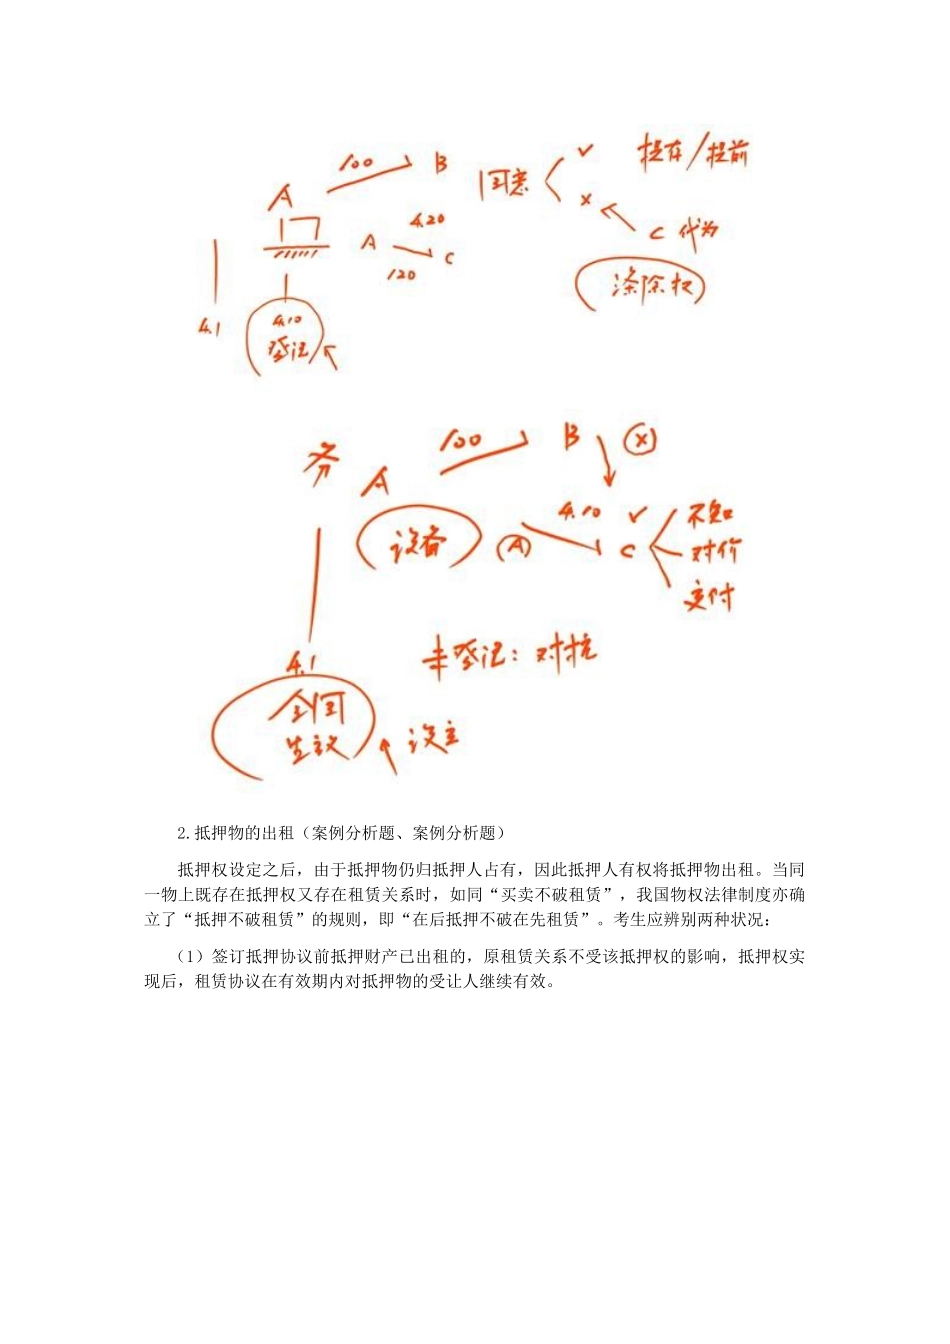 100
B
同意
✓
提存/提前
A
4.20
×
A
C
C 代为
120
涤除权
4.1
4.10
登记
100
B
×
A
4.10
✓
不知
设备
A
C
对价
交付
4.1
未登记：对抗
合同
生效
设立
2.抵押物的出租（案例分析题、案例分析题）
抵押权设定之后，由于抵押物仍归抵押人占有，因此抵押人有权将抵押物出租。当同
一物上既存在抵押权又存在租赁关系时，如同“买卖不破租赁”，我国物权法律制度亦确
立了“抵押不破租赁”的规则，即“在后抵押不破在先租赁”。考生应辨别两种状况：
（1）签订抵押协议前抵押财产已出租的，原租赁关系不受该抵押权的影响，抵押权实
现后，租赁协议在有效期内对抵押物的受让人继续有效。